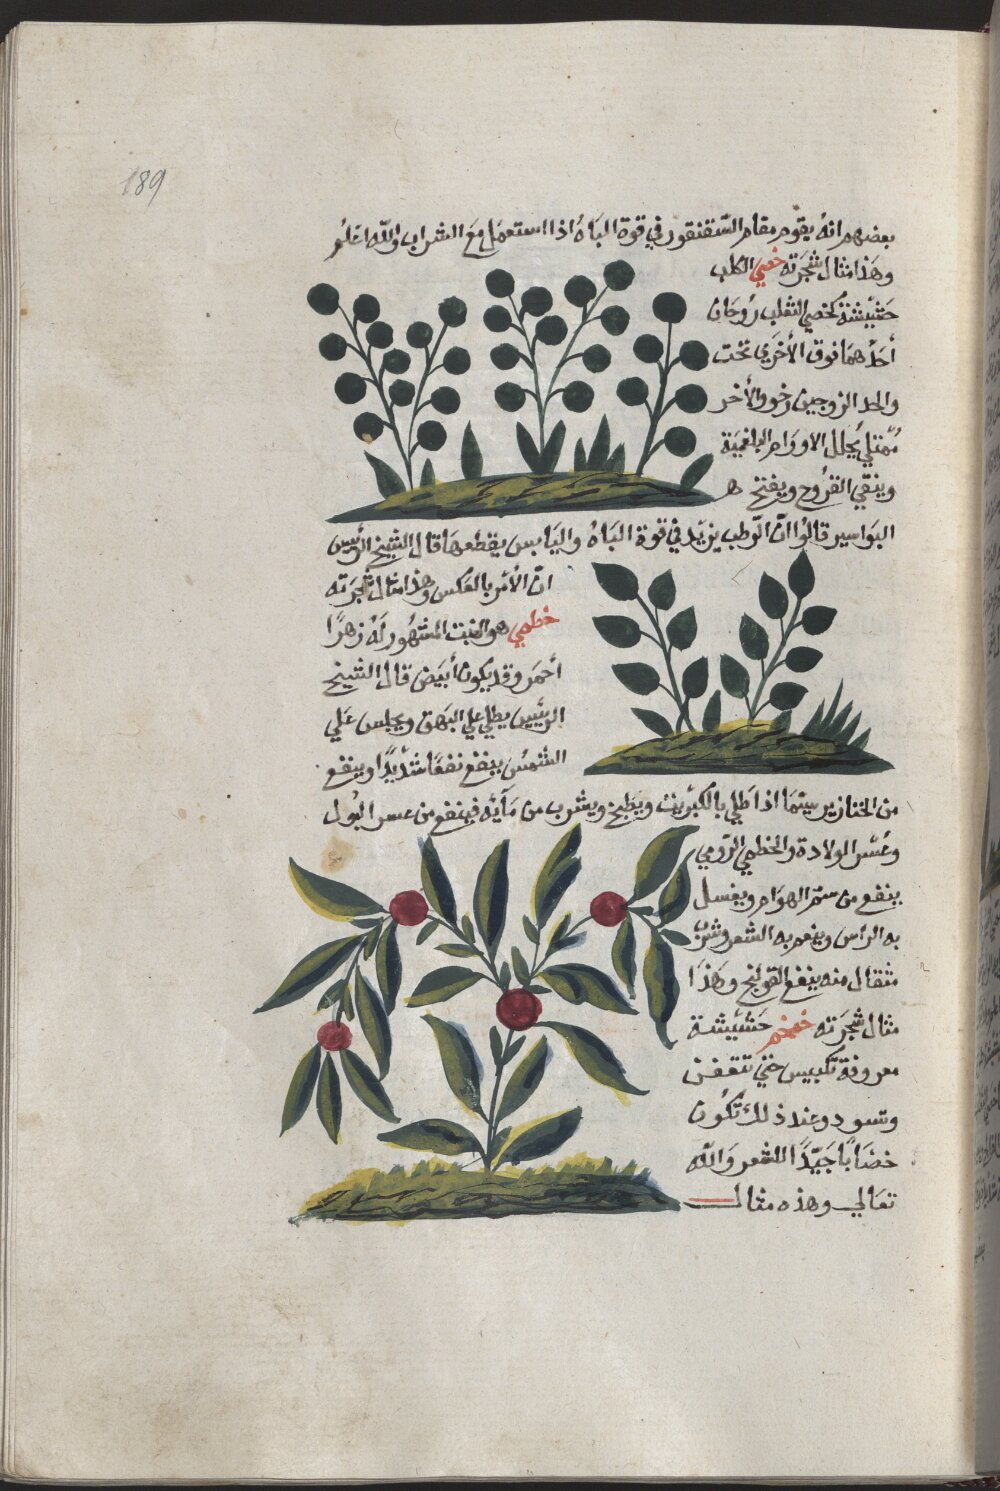 189
بعضهم انهُ يقوم مقام السّقنقور في قوة البَاهُ اذا استعمل مَع الشراب واللّٰه اعلم
وهَذا مثال شجَرَته خصي الكلب
حَشيشة كخصي الثعلب زوجَان
أحَدُهمَا فوق الأخرَي تحت
واحد الزوجين رخو والأخر
مُمتلي يُحلل الاورَام البلغميَة
وينقي القرُوح ويفتح ه
البوَاسير قالوُا انّ الرّطب يزيد في قوة البَاهُ واليَابس يقطعهَا قال الشيخ الرئيس
انّ الأمر بالعَكس وهذا مثال شجرَته
خطمي هو النبت المشهُور لَهُ زهرًا
أحمَر وقد يكون أبيَض قال الشيخ
الرئيس يطلي علي البهق ويجلس عَلي
الشمسُ ينفع نفعًا شديدًا وينفع
من الخنازير سيّمَا اذا طلي بالكبريت ويَطبخ ويشرب من مَآيَه فينفع من عسر البُول
وعُسر الولادة والخطمي الرّومي
ينفع من سمّ الهوَام ويغسل
به الرّاس وينعم به الشعر وشرب
مثقال منه ينفع القولنج وهَذا
مثال شجَرَته خمخم حَشيشة
معروفة تكبيس حتي تتعفن
وتسود وعند ذلك تكُون
خضَابًا جَيّدًا للشعر وَاللّٰه
تعَالي وهذه مثال